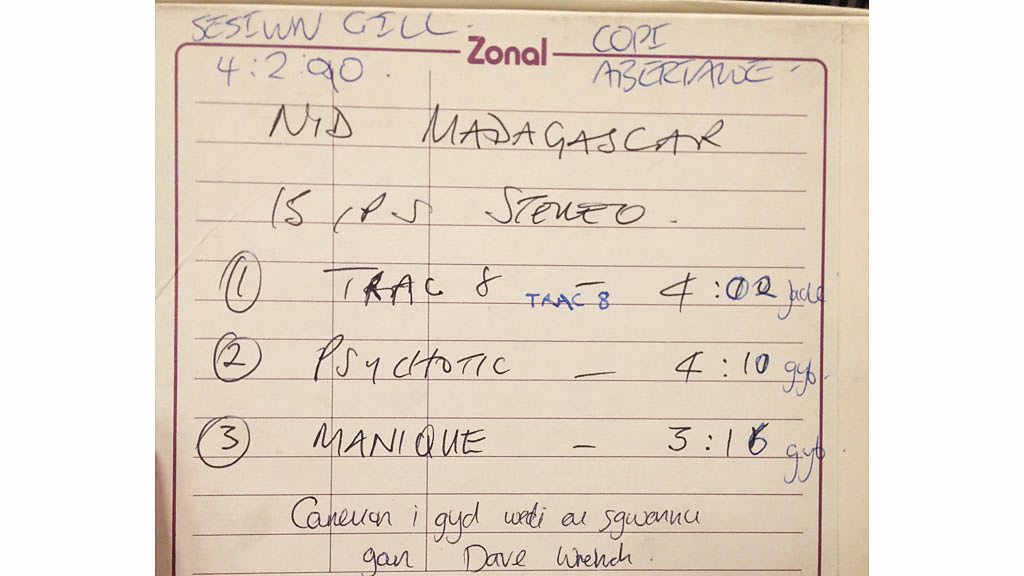 SESIWN GILL.
Zonal
COPI
4:2:90.
ABERTAWE.
NID MADAGASCAR
15 IPS STEREO.
1 TRAC 8 TRAC 8 – 4:02
2 PSYCHOTIC – 4:10 gyb.
3 MANIQUE – 3:16 gyb.
Caneuon i gyd wedi eu sgwennu
gan Dave Wrench.